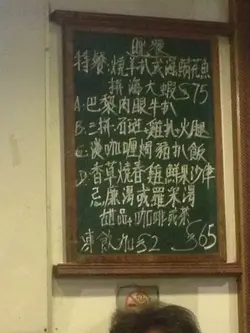 特餐:燒羊扒或海鮮花魚
拼海大蝦$75
A.巴黎肉眼牛扒
B.三拼:石班,雞扒,火腿
C.濃咖喱焗豬扒飯
D.香草燒春雞鮮果沙律
忌廉湯或羅宋湯
甜品+咖啡或茶
凍飲加$2 $65